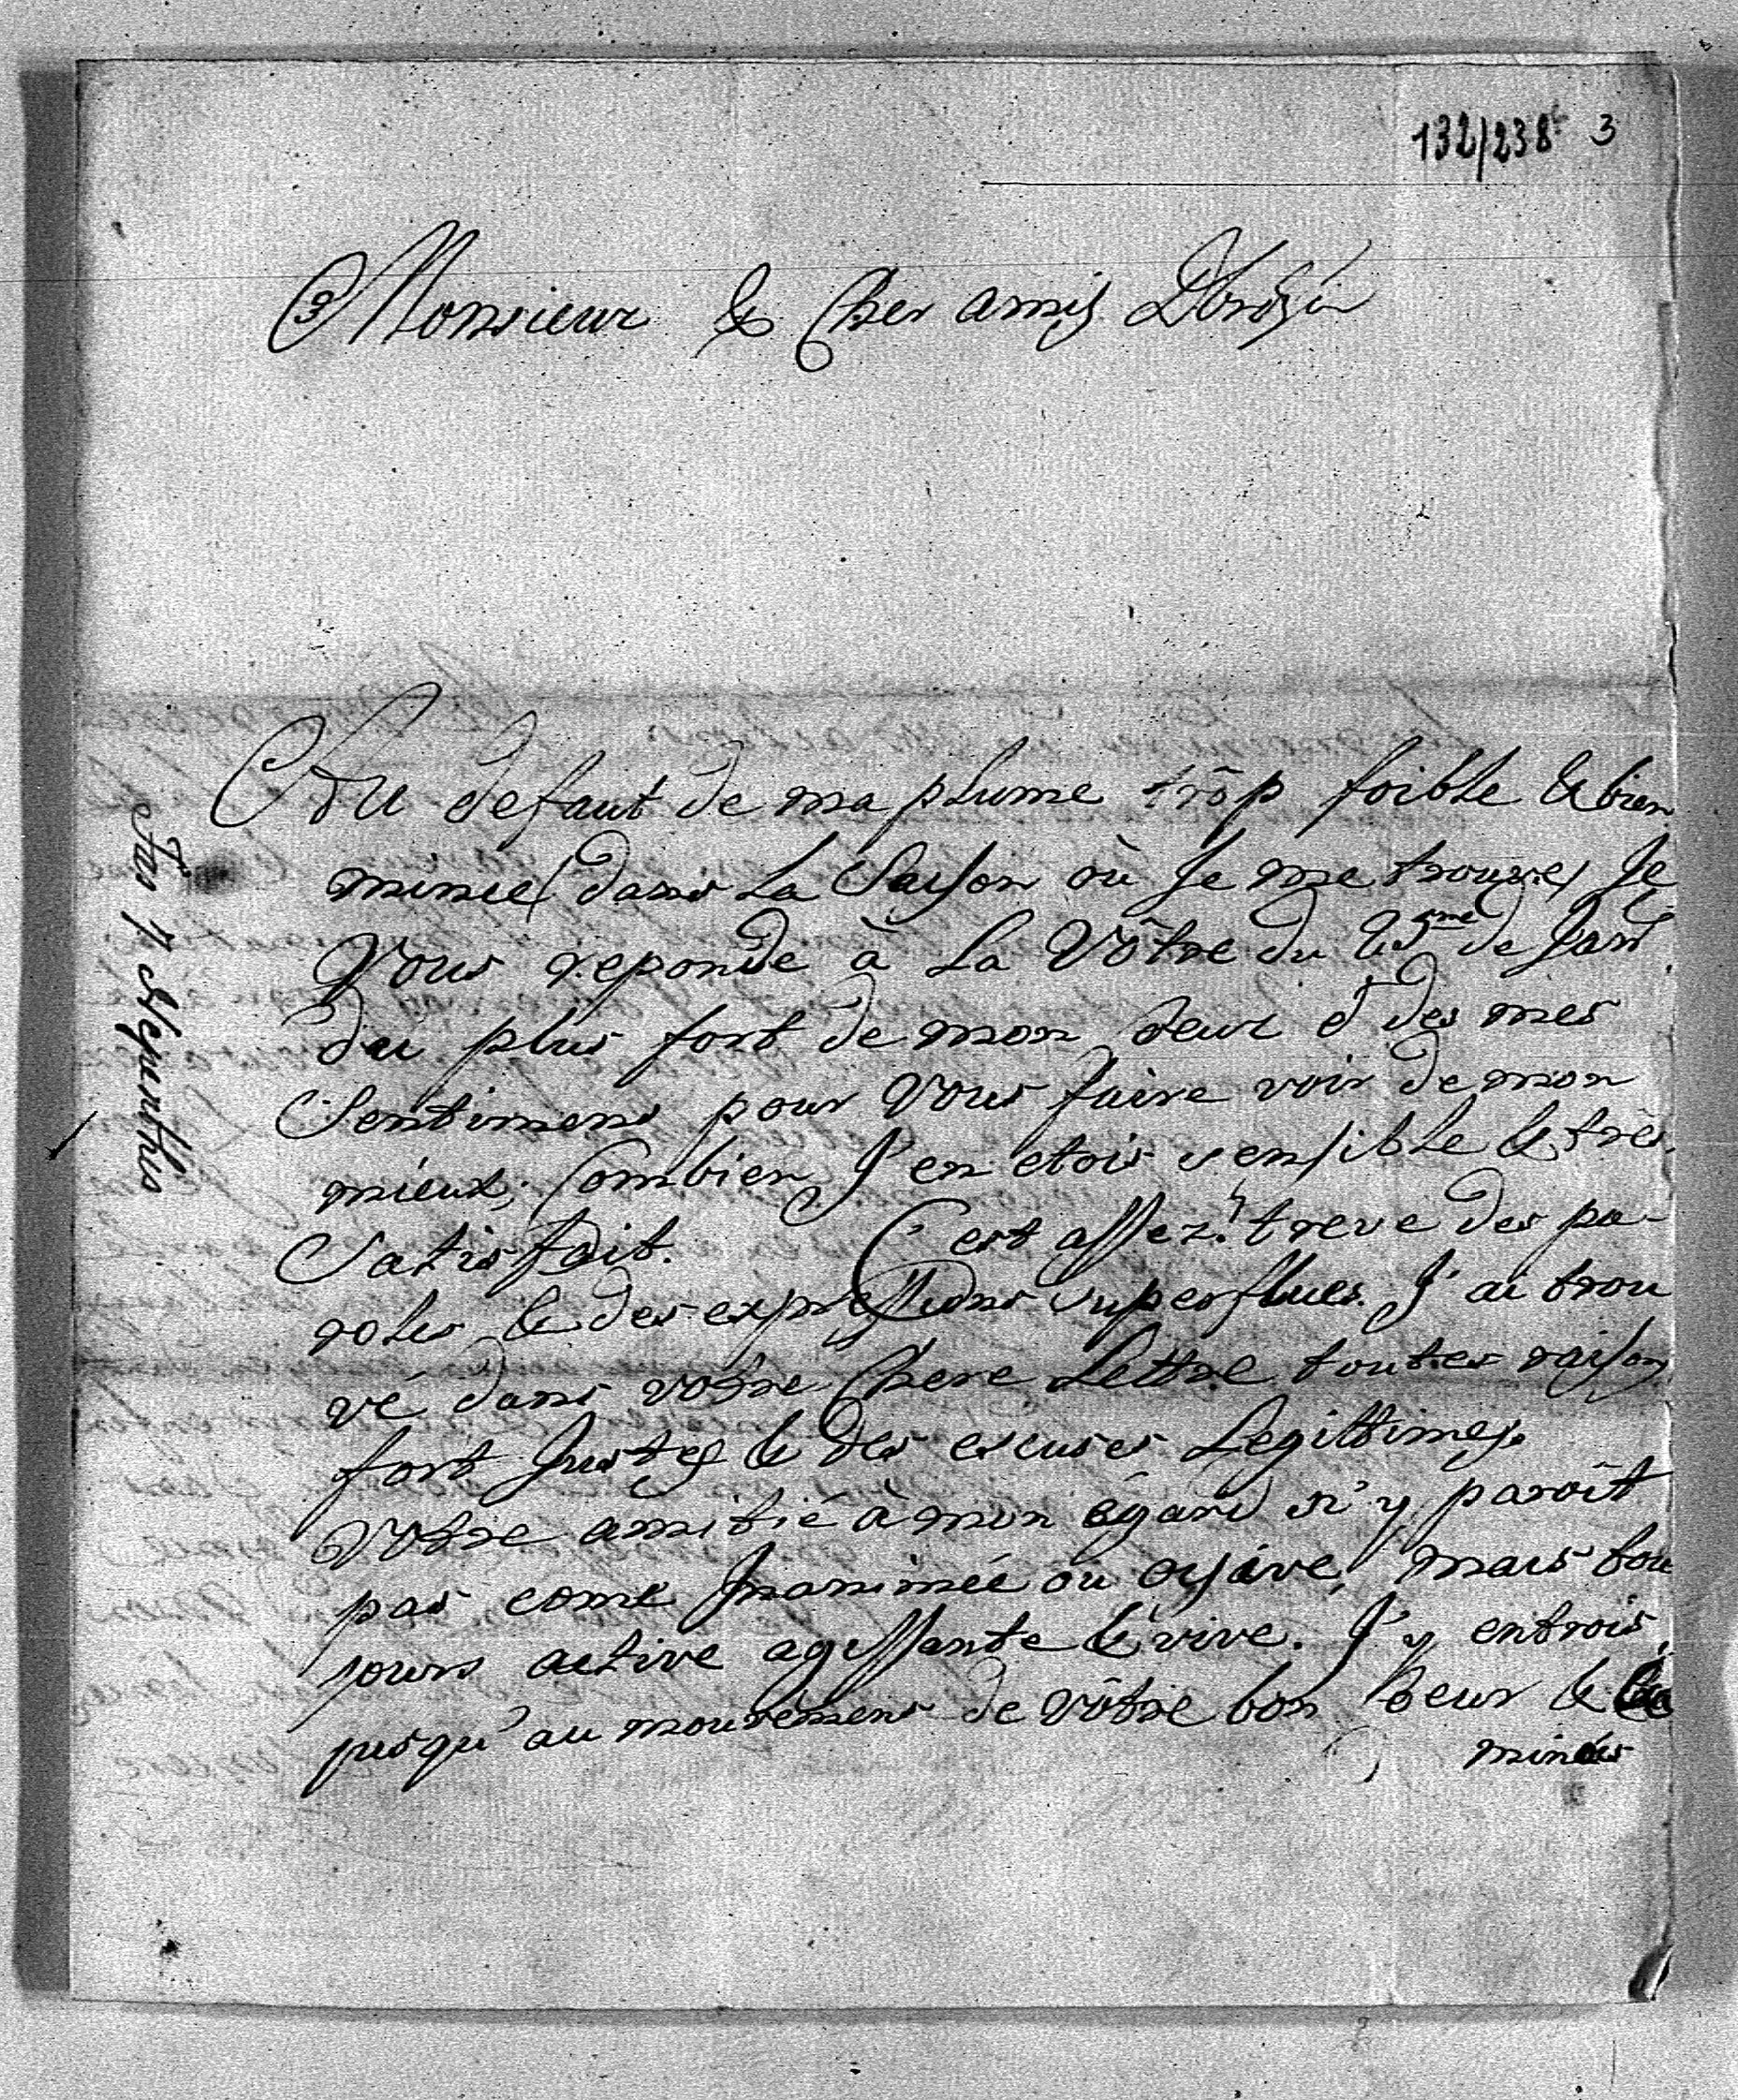 132/238 3
Monsieur & Cher amis
Au defaut de ma plume trôp foible & bien
mince (dans La Saison où Je me trouve) Je
Vous reponde à La Vôtre du de Janr.
du plus fort de mon Ceur & des mes
Sentimens pour Vous faire voir de mon
mieux, Combien J'en etois sensible & tres
Satisfait. C'est assez! treve des pa-
roles & des expressions superflues. J'ai trou
vé dans votre Chere Lettre toutes raison
fort Justes & des escuses Legittimes.
Votre amitié à mon égard n'y paroît
pas come Inanimée ou oysive, mais tou
jours active agissante & vive. J'y entrois
jusqu'au mouvemens de Vôtre bon Ceur &